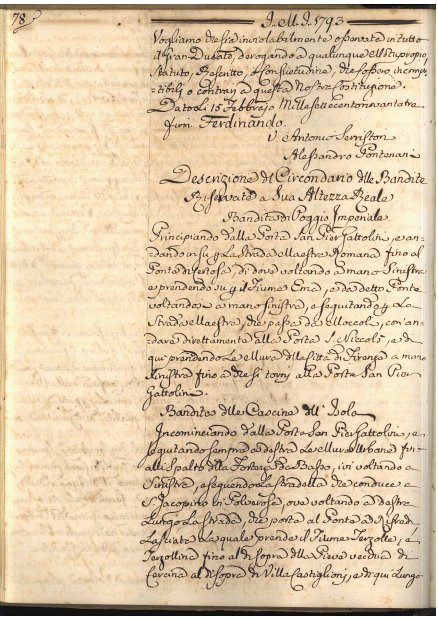 78
I. M. I. 1793
Vogliamo che sia inviolabilmente osservata in tutto
il Gran-Ducato, derogando a qualunque Motuproprio,
Statuto, Rescritto, e Consuetudine, che fossero incompa-
tibili, o contrarj a questa Nostra Costituzione.
Dato li 15 Febbrajo Millesettecentonovantatre
Firm. Ferdinando.
V. Antonio Serristori
Alessandro Pontenani
Descrizione del Circondario delle Bandite
Riservate a Sua Altezza Reale
Bandita di Poggio Imperiale
Principiando dalla Porta San Pier Gattolini, e an-
dando in su p. la Strada Maestra Romana fino al
Ponte di Certosa, di dove voltando a mano Sinistra
e prendendo su p. il Fiume Ema, e da detto Ponte
voltando a mano sinistra, e seguitando p. la
Strada Maestra, che passa da, con an-
dare direttamente alla Porta S. Niccolò, e di
qui prendendo le Mura della Città di Firenze a mano
Sinistra fino a che si torni alla Porta San Pier
Gattolini.
Bandita delle Cascine dell' Isola
Incominciando dalla Porta San Pier Gattolini, e
seguitando sempre a destra le Mura Urbane fin'
alli Spalti della Fortezza da Basso, ivi voltando a
Sinistra, e seguendo la stradella che conduce a
S. Jacopino in Polverosa, ove voltando a destra
Lungo la Strada, che porta al Ponte a Rifredi
Lasciata la quale prende il Fiume Terzolle, e
Terzollina fino al di sopra della Pieve vecchia di
Cercina al di sopra di Villa Castiglioni, e di qui Lungo